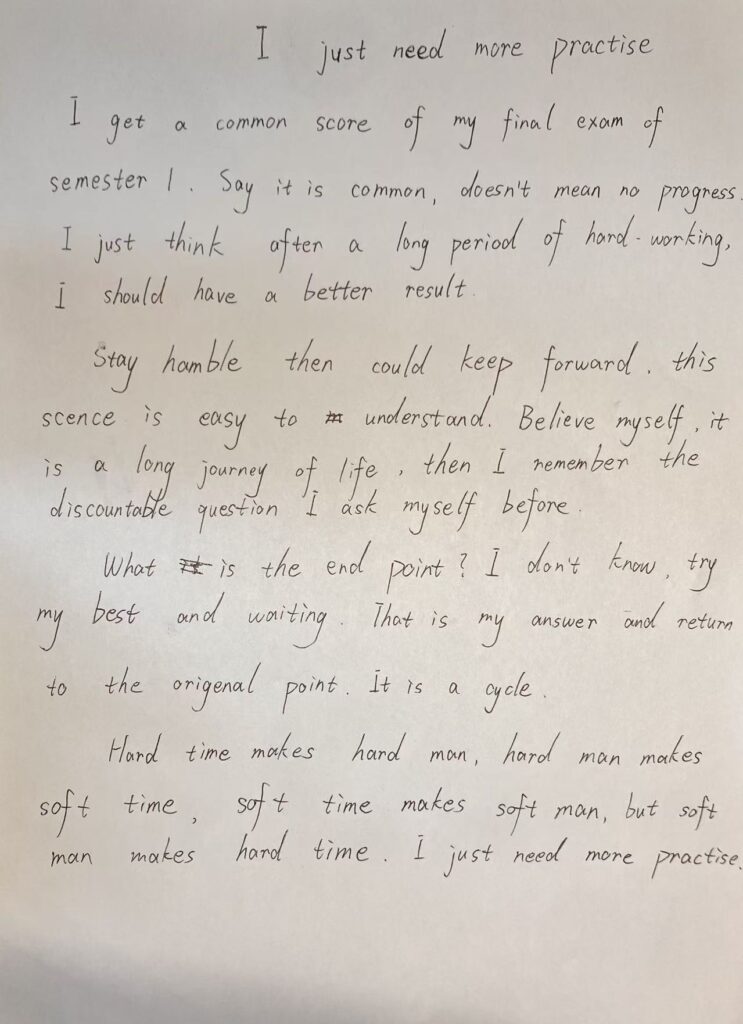 I just need more practise
I get a common score of my final exam of
semester 1. Say it is common, doesn't mean no progress.
I just think after a long period of hard-working,
I should have a better result.
Stay hamble then could keep forward, this
scence is easy to understand. Believe myself, it
is a long journey of life, then I remember the
discountable question I ask myself before.
What is the end point? I don't know, try
my best and waiting. That is my answer and return
to the origenal point. It is a cycle.
Hard time makes hard man, hard man makes
soft time, soft time makes soft man, but soft
man makes hard time. I just need more practise.